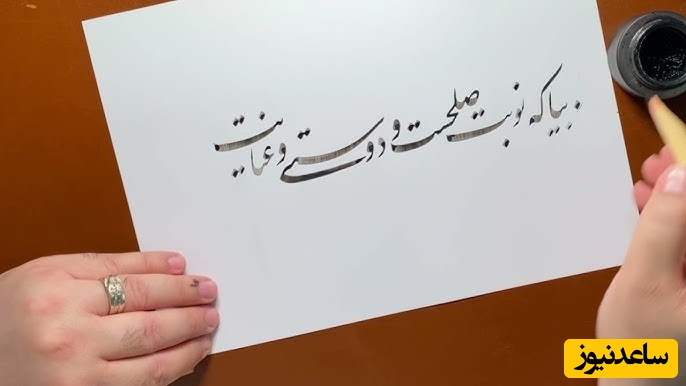 بیا که نوبت صلحست و دوستی و عنایت
ساعدنیوز